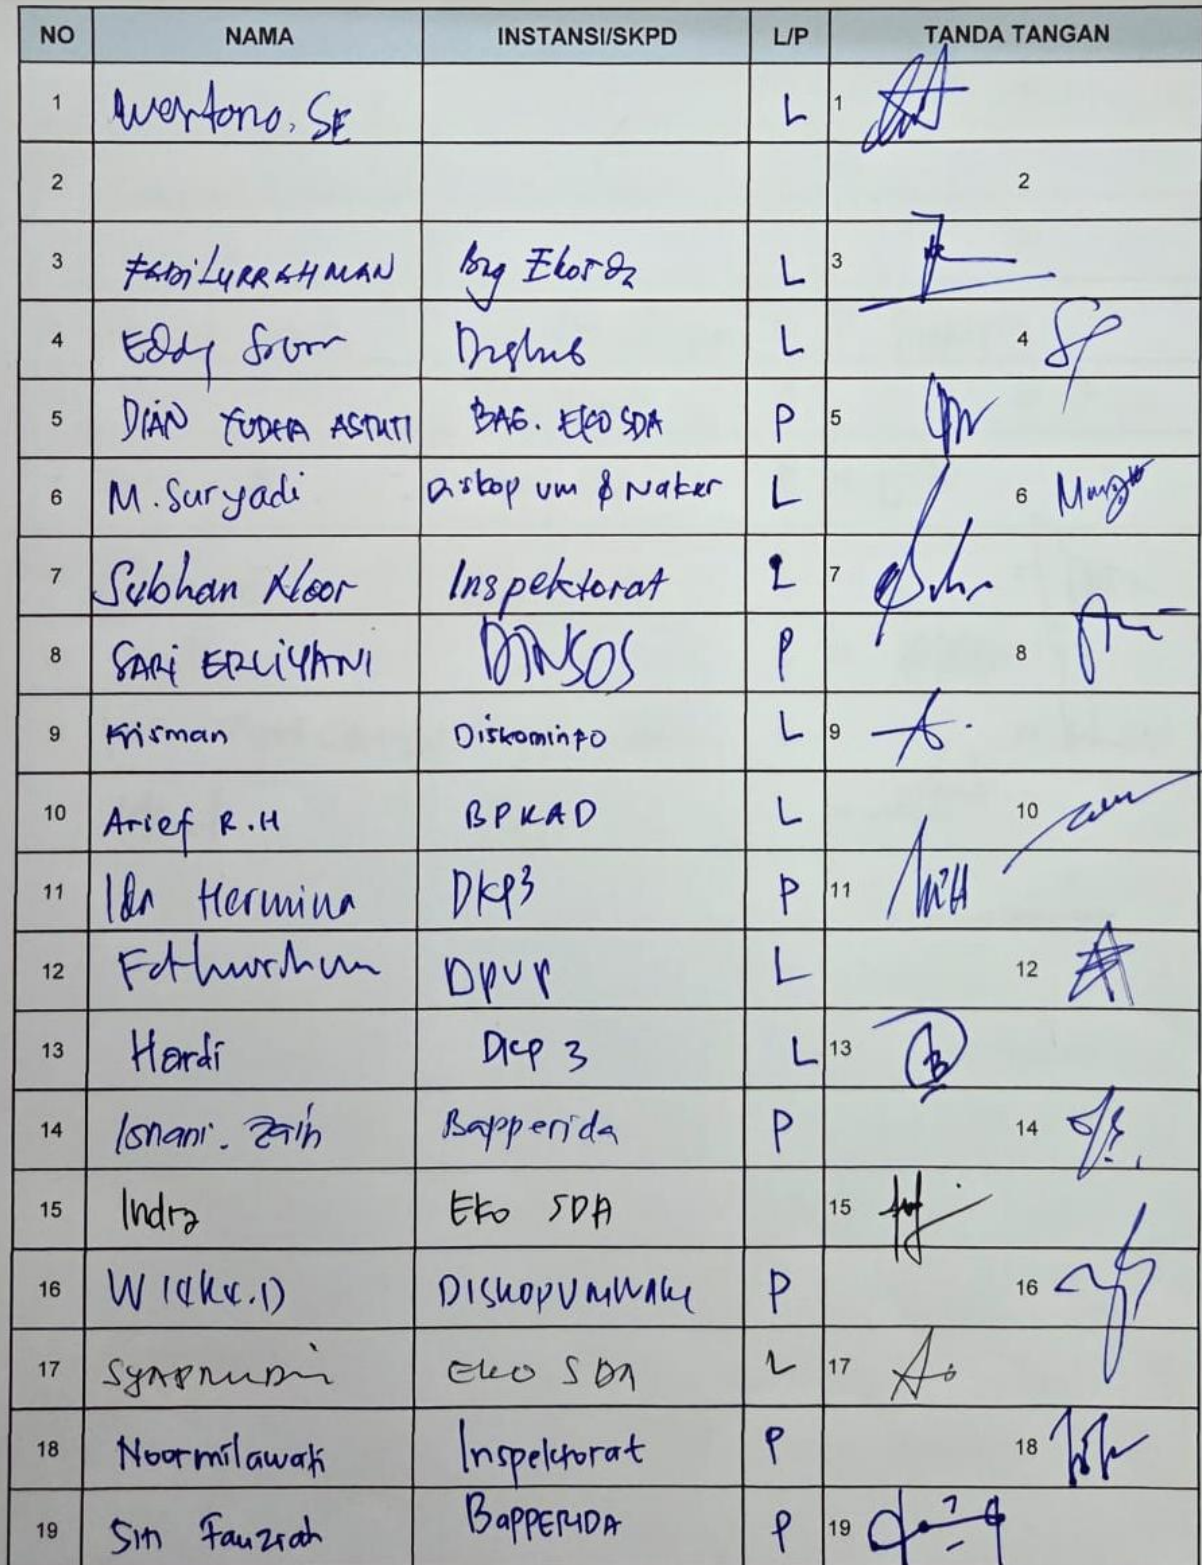 NO NAMA INSTANSI/SKPD L/P TANDA TANGAN
1 Wartono, SE L 1
2 2
3 FADiLURRAHMAN Bag Ekosda L 3
4 Eddy L 4
5 DIAN YUDHA ASTUTI BAG. EKO SDA P 5
6 M. Suryadi Diskop um & Naker L 6
7 Subhan Noor Inspektorat L 7
8 SARi ERLiYANI DINSOS P 8
9 Krisman Diskominfo L 9
10 Arief R.H BPKAD L 10
11 Ida Hermina DKP3 P 11
12 Fathurrahman DPUP L 12
13 Hardi DKP 3 L 13
14 Isnani. Zain Bapperida P 14
15 Indra Eko SDA 15
16 DISKOPUMNAKE P 16
17 SYAPRUDin Eko SDA L 17
18 Noormilawati Inspektorat P 18
19 Siti Fauziah BAPPERIDA P 19